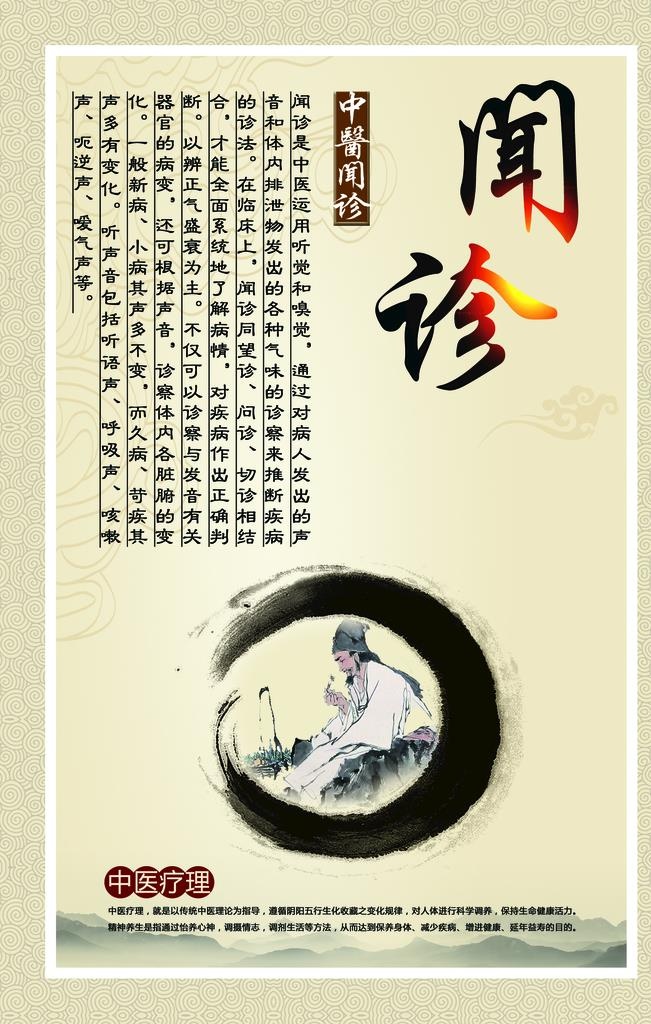 聞诊
中醫聞诊
闻诊是中医运用听觉和嗅觉，通过对病人发出的声
音和体内排泄物发出的各种气味的诊察来推断疾病
的诊法。在临床上，闻诊同望诊、问诊、切诊相结
合，才能全面系统地了解病情，对疾病作出正确判
断。以辨正气盛衰为主。不仅可以诊察与发音有关
器官的病变，还可根据声音，诊察体内各脏腑的变
化。一般新病、小病其声多不变，而久病、苛疾其
声多有变化。听声音包括听语声、呼吸声、咳嗽
声、呃逆声、嗳气声等。
中医疗理
中医疗理，就是以传统中医理论为指导，遵循阴阳五行生化收藏之变化规律，对人体进行科学调养，保持生命健康活力。
精神养生是指通过怡养心神，调摄情志，调剂生活等方法，从而达到保养身体、减少疾病、增进健康、延年益寿的目的。